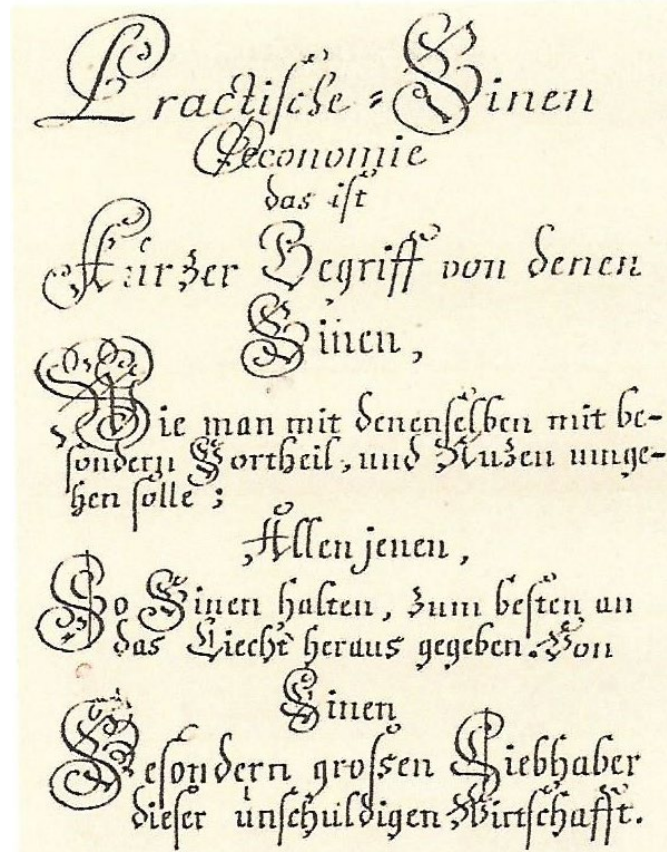 Practische = Binen
Oeconomie
das ist
Kurzer Begriff von denen
Binen,
Wie man mit denenselben mit be-
sondern Vortheil, und Nuzen umge-
hen solle;
Allen jenen,
So Binen halten, zum besten an
das Liecht heraus gegeben. Von
Einen
Besondern grossen Liebhaber
dieser unschuldigen Wirtschafft.